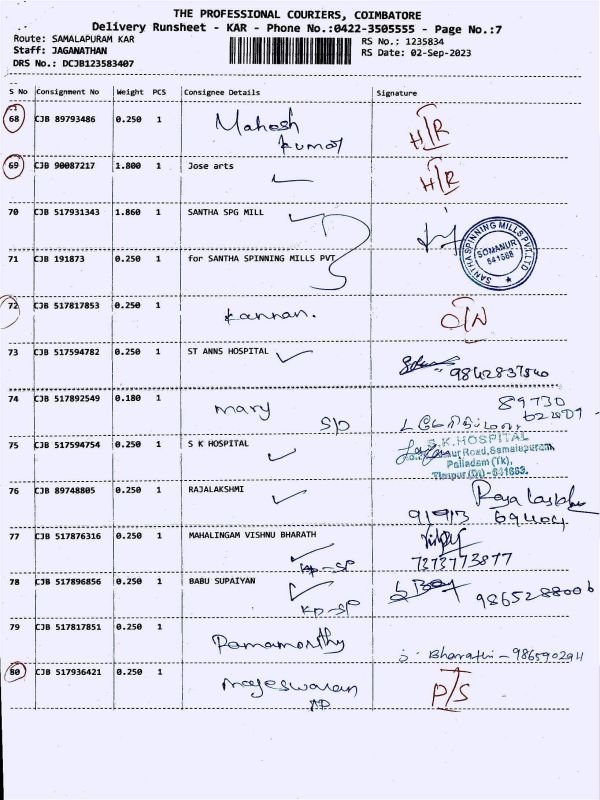 THE PROFESSIONAL COURIERS, COIMBATORE
Delivery Runsheet - KAR - Phone No.:0422-3505555 - Page No.:7
Route: SAMALAPURAM KAR
RS No.: 1235834
Staff: JAGANATHAN
RS Date: 02-Sep-2023
DRS No.: DCJB123583407
S No Consignment No Weight PCS Consignee Details Signature
68 CJB 89793486 0.250 1 Mahesh
kumar
69 CJB 90087217 1.800 1 Jose arts
70 CJB 517931343 1.860 1 SANTHA SPG MILL
SANTHA SPINNING MILLS PVT.LTD
SOMANUR
641668
71 CJB 191873 0.250 1 for SANTHA SPINNING MILLS PVT
72 CJB 517817853 0.250 1 Kannan.
73 CJB 517594782 0.250 1 ST ANNS HOSPITAL
9842837540
74 CJB 517892549 0.180 1 mary
S/O
89730
75 CJB 517594754 0.250 1 S K HOSPITAL
S.K.HOSPITAL
Road, Samalapuram,
Palladam (Tk),
Tirupur (Dt) - 641663.
76 CJB 89748805 0.250 1 RAJALAKSHMI
91913 69404
77 CJB 517876316 0.250 1 MAHALINGAM VISHNU BHARATH
KP-SP
7373773877
78 CJB 517896856 0.250 1 BABU SUPAIYAN
KP-SP
9865288006
79 CJB 517817851 0.250 1 Ramamorthy
Bharathi - 986590294
80 CJB 517936421 0.250 1 mageswaran
P/S